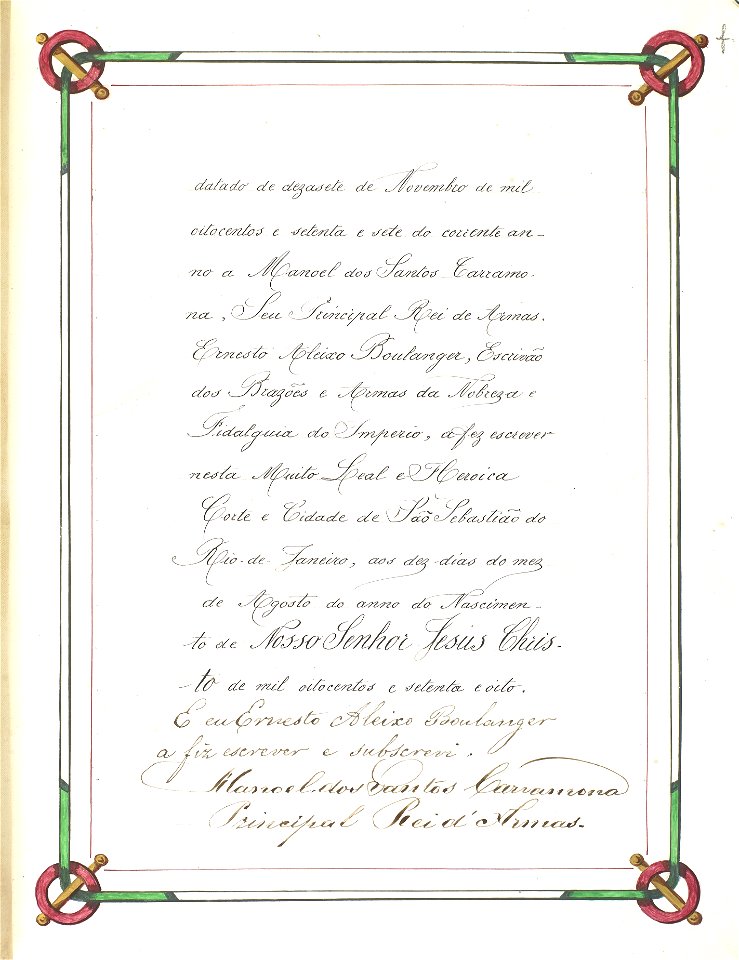 datado de dezasete de Novembro de mil
oitocentos e setenta e sete do corrente an-
no a Manoel dos Santos Carramo-
na, Seu Principal Rei de Armas.
Ernesto Aleixo Boulanger, Escrivão
dos Brazões e Armas da Nobreza e
Fidalguia do Imperio, a fez escrever
nesta Muito Leal e Heroica
Corte e Cidade de São Sebastião do
Rio de Janeiro, aos dez dias do mez
de Agosto do anno do Nascimen-
to de Nosso Senhor Jesus Chris-
to de mil oitocentos e setenta e oito.
E eu Ernesto Aleixo Boulanger
a fiz escrever e subscrevi.
Manoel dos Santos Carramona
Principal Rei d'Armas.